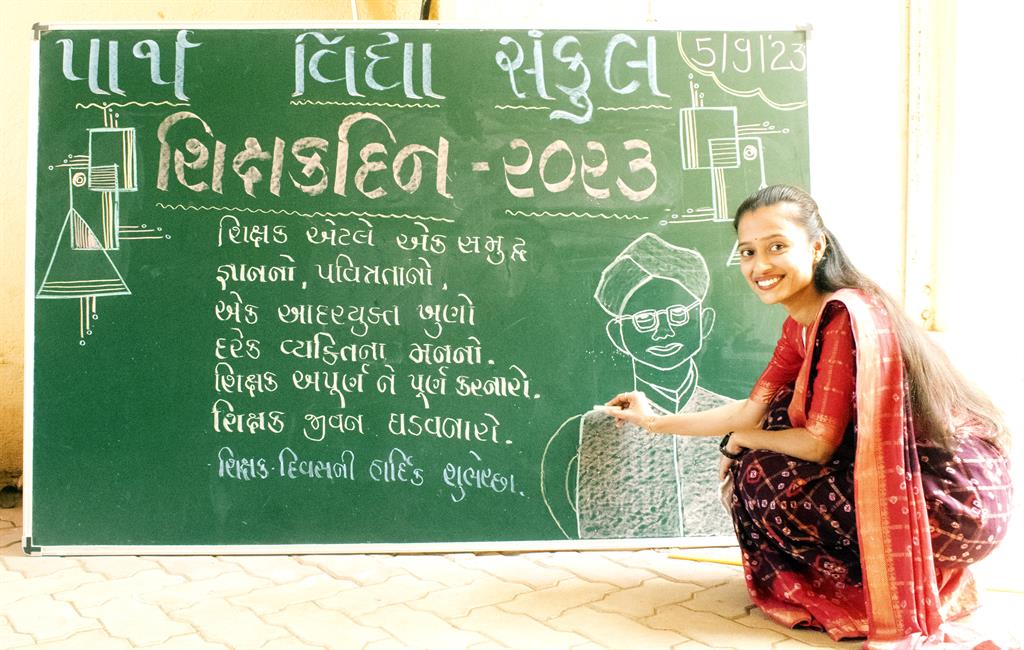 પાર્થ વિદ્યા સંકુલ
5/9/'23
શિક્ષકદિન - ૨૦૨૩
શિક્ષક એટલે એક સમુદ્ર
જ્ઞાનનો, પવિત્રતાનો,
એક આદરયુક્ત ખુણો
દરેક વ્યક્તિના મનનો.
શિક્ષક અપૂર્ણ ને પૂર્ણ કરનારો.
શિક્ષક જીવન ઘડવનારો.
શિક્ષક દિવસની હાર્દિક શુભેચ્છા.